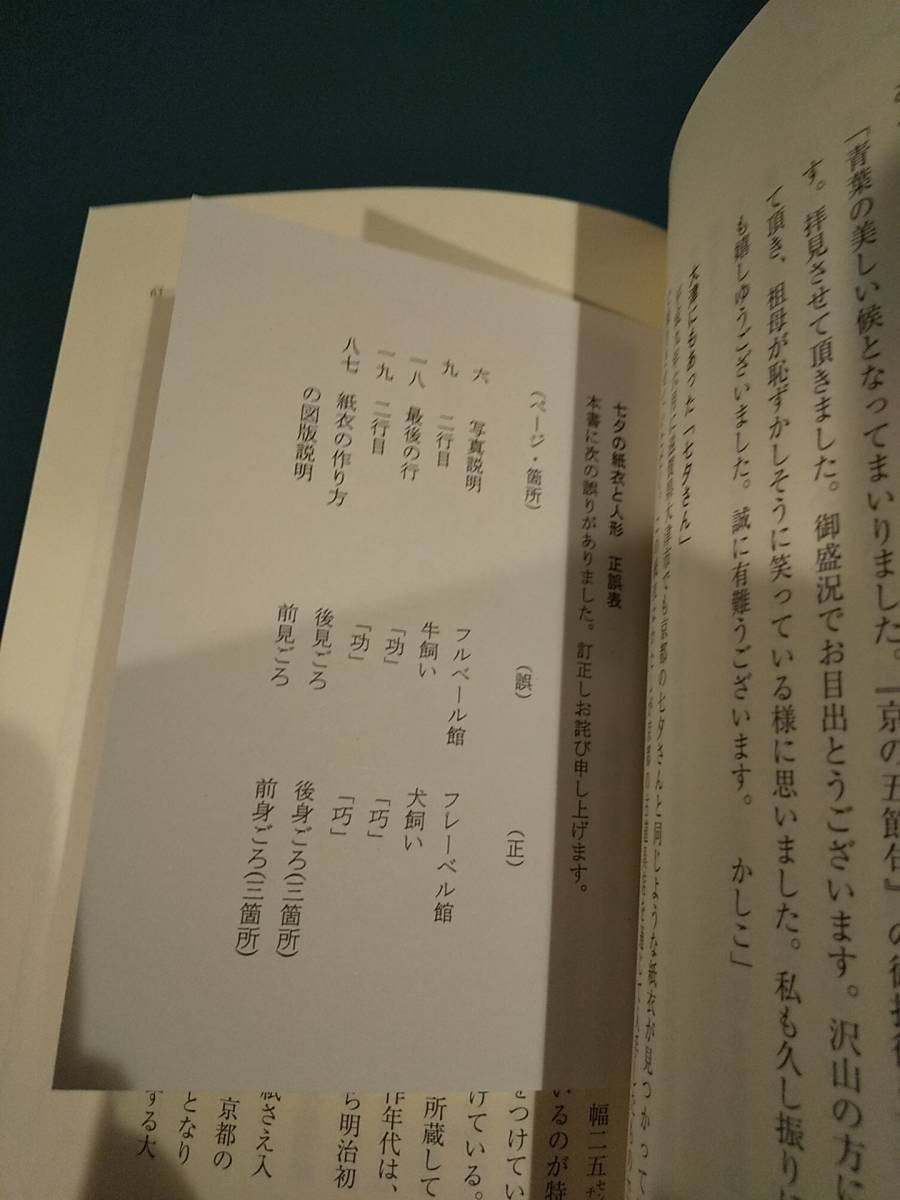 「青葉の美しい候となってまいりました。『京の五節句』の御
す。拝見させて頂きました。御盛況でお目出とうございます。沢山の方に
て頂き、祖母が恥ずかしそうに笑っている様に思いました。私も久し振り
も嬉しゅうございました。誠に有難うございます。　かしこ」
大津にもあった「七夕さん」
大津市でも京都の七夕さんと同じような紙衣が見つかって
七夕の紙衣と人形　正誤表
本書に次の誤りがありました。訂正しお詫び申し上げます。
（ページ・箇所）　（誤）　（正）
六　写真説明　フルベール館　フレーベル館
九　二行目　牛飼い　犬飼い
一八　最後の行　「功」　「巧」
一九　二行目　「功」　「巧」
八七　紙衣の作り方　後見ごろ　後身ごろ（三箇所）
の図版説明　前見ごろ　前身ごろ（三箇所）
61
幅二五㌢
いるのが特
をつけてい
けている。
所蔵して
作年代は、
ら明治初
紙さえ入
京都の
となり
する大